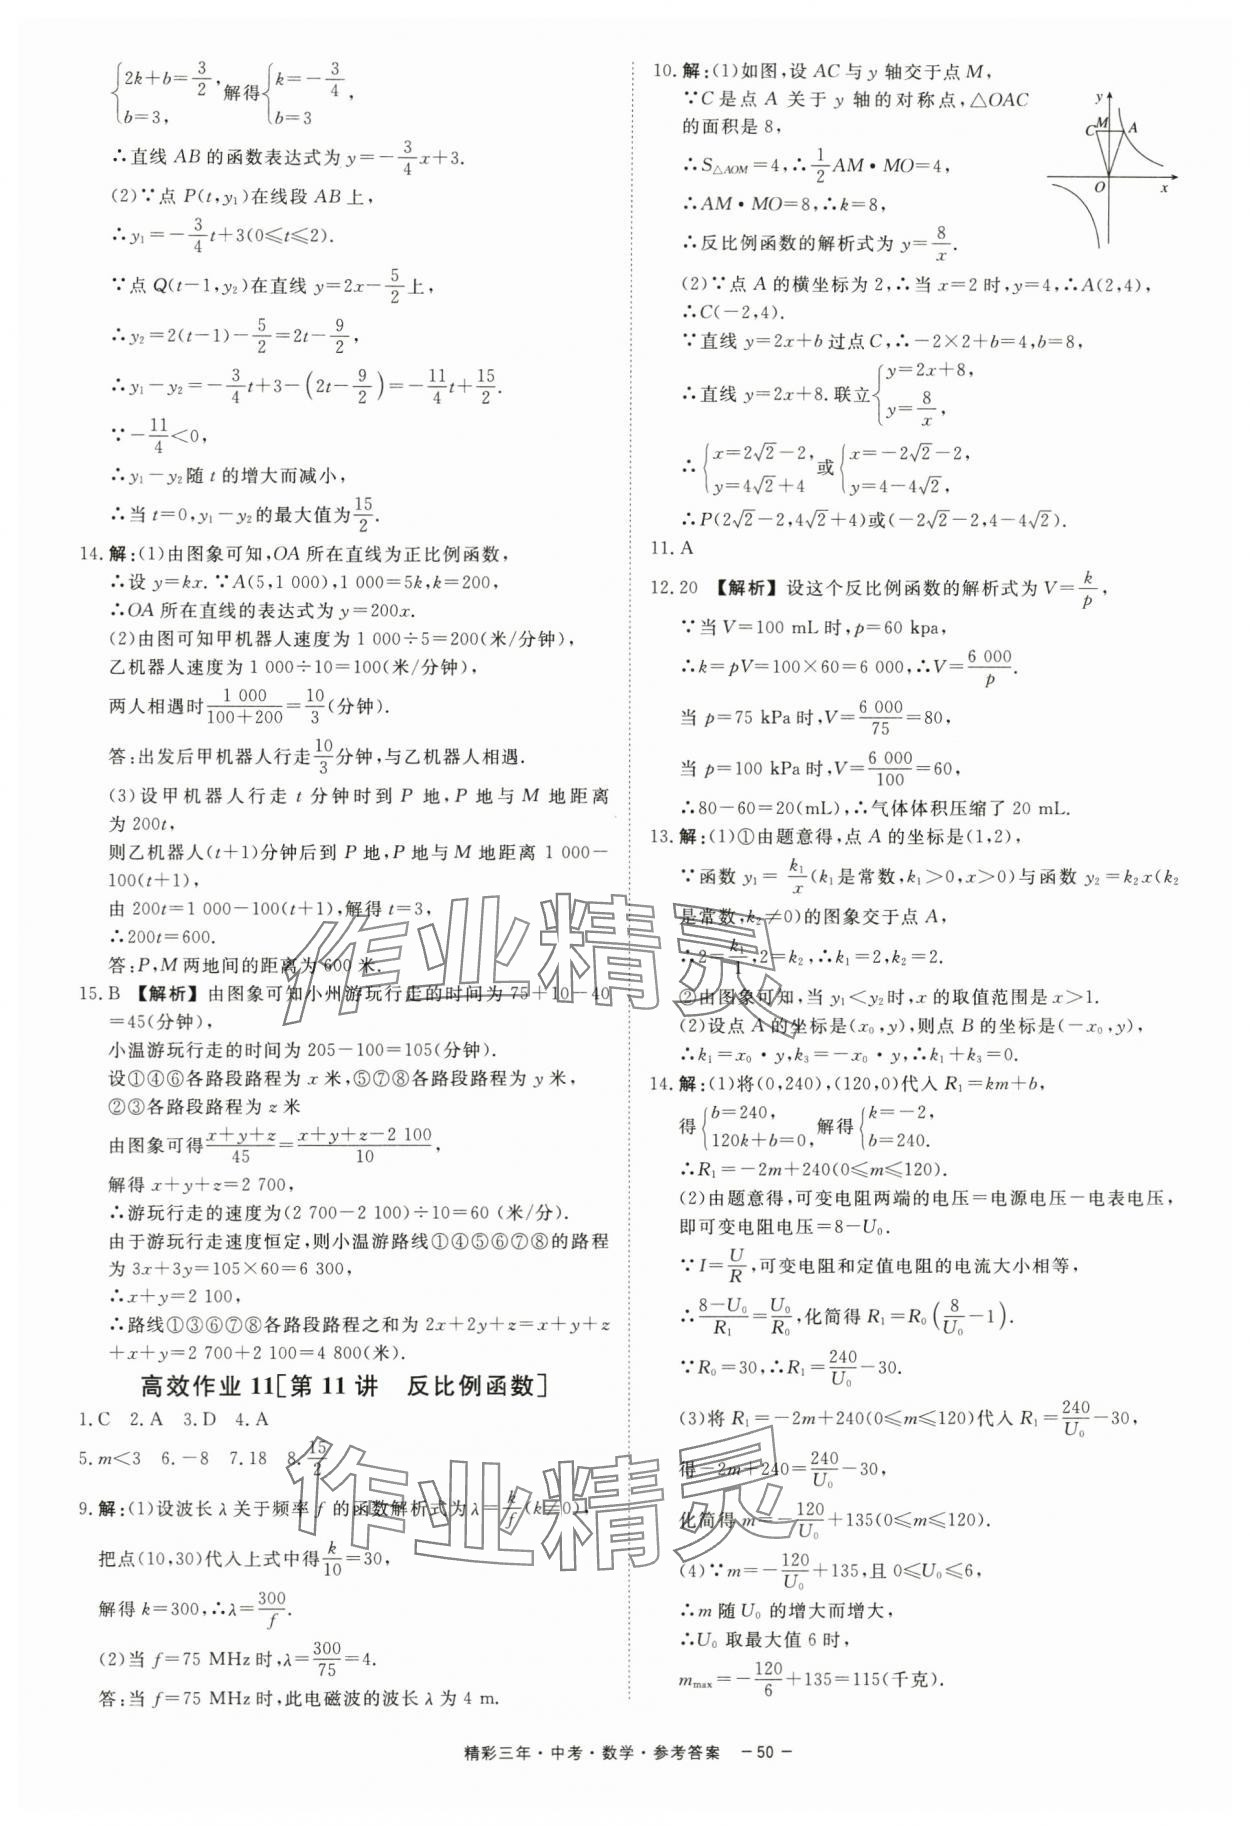 {2k+b=3/2, b=3, 解得{k=-3/4, b=3,
∴直线 AB 的函数表达式为 y=-3/4x+3.
(2)∵点 P(t,y₁)在线段 AB 上,
∴y₁=-3/4t+3(0≤t≤2).
∵点 Q(t-1,y₂)在直线 y=2x-5/2上,
∴y₂=2(t-1)-5/2=2t-9/2,
∴y₁-y₂=-3/4t+3-(2t-9/2)=-11/4t+15/2.
∵-11/4<0,
∴y₁-y₂随 t 的增大而减小,
∴当 t=0,y₁-y₂的最大值为15/2.
14.解:(1)由图象可知,OA 所在直线为正比例函数,
∴设 y=kx.∵A(5,1 000),1 000=5k,k=200,
∴OA 所在直线的表达式为 y=200x.
(2)由图可知甲机器人速度为 1 000÷5=200(米/分钟),
乙机器人速度为 1 000÷10=100(米/分钟),
两人相遇时1 000/(100+200)=10/3(分钟).
答:出发后甲机器人行走10/3分钟,与乙机器人相遇.
(3)设甲机器人行走 t 分钟时到 P 地,P 地与 M 地距离
为 200t,
则乙机器人(t+1)分钟后到 P 地,P 地与 M 地距离 1 000-
100(t+1),
由 200t=1 000-100(t+1),解得 t=3,
∴200t=600.
答:P,M 两地间的距离为 600 米.
15.B 【解析】由图象可知小州游玩行走的时间为 75+10-40
=45(分钟),
小温游玩行走的时间为 205-100=105(分钟).
设①④⑥各路段路程为 x 米,⑤⑦⑧各路段路程为 y 米,
②③各路段路程为 z 米
由图象可得(x+y+z)/45=(x+y+z-2 100)/10,
解得 x+y+z=2 700,
∴游玩行走的速度为(2 700-2 100)÷10=60 (米/分).
由于游玩行走速度恒定,则小温游路线①④⑤⑥⑦⑧的路程
为 3x+3y=105×60=6 300,
∴x+y=2 100,
∴路线①③⑥⑦⑧各路段路程之和为 2x+2y+z=x+y+z
+x+y=2 700+2 100=4 800(米).
高效作业 11[第 11 讲 反比例函数]
1.C 2.A 3.D 4.A
5.m<3 6.-8 7.18 8.15/2
9.解:(1)设波长 λ 关于频率 f 的函数解析式为 λ=k/f(k≠0),
把点(10,30)代入上式中得k/10=30,
解得 k=300,∴λ=300/f.
(2)当 f=75 MHz 时,λ=300/75=4.
答:当 f=75 MHz 时,此电磁波的波长 λ 为 4 m.
10.解:(1)如图,设 AC 与 y 轴交于点 M,
∵C 是点 A 关于 y 轴的对称点,△OAC
的面积是 8,
∴S△AOM=4,∴1/2AM·MO=4,
∴AM·MO=8,∴k=8,
∴反比例函数的解析式为 y=8/x.
y
C M A
O x
(2)∵点 A 的横坐标为 2,∴当 x=2 时,y=4,∴A(2,4),
∴C(-2,4).
∵直线 y=2x+b 过点 C,∴-2×2+b=4,b=8,
∴直线 y=2x+8.联立{y=2x+8, y=8/x,
∴{x=2√2-2, y=4√2+4 或{x=-2√2-2, y=4-4√2,
∴P(2√2-2,4√2+4)或(-2√2-2,4-4√2).
11.A
12.20 【解析】设这个反比例函数的解析式为 V=k/p,
∵当 V=100 mL 时,p=60 kpa,
∴k=pV=100×60=6 000,∴V=6 000/p.
当 p=75 kPa 时,V=6 000/75=80,
当 p=100 kPa 时,V=6 000/100=60,
∴80-60=20(mL),∴气体体积压缩了 20 mL.
13.解:(1)①由题意得,点 A 的坐标是(1,2),
∵函数 y₁=k₁/x(k₁是常数,k₁>0,x>0)与函数 y₂=k₂x(k₂
是常数,k₂≠0)的图象交于点 A,
∴2=k₁/1,2=k₂,∴k₁=2,k₂=2.
②由图象可知,当 y₁<y₂时,x 的取值范围是 x>1.
(2)设点 A 的坐标是(x₀,y),则点 B 的坐标是(-x₀,y),
∴k₁=x₀·y,k₃=-x₀·y,∴k₁+k₃=0.
14.解:(1)将(0,240),(120,0)代入 R₁=km+b,
得{b=240, 120k+b=0, 解得{k=-2, b=240.
∴R₁=-2m+240(0≤m≤120).
(2)由题意得,可变电阻两端的电压=电源电压-电表电压,
即可变电阻电压=8-U₀.
∵I=U/R,可变电阻和定值电阻的电流大小相等,
∴(8-U₀)/R₁=U₀/R₀,化简得 R₁=R₀(8/U₀-1).
∵R₀=30,∴R₁=240/U₀-30.
(3)将 R₁=-2m+240(0≤m≤120)代入 R₁=240/U₀-30,
得-2m+240=240/U₀-30,
化简得 m=-120/U₀+135(0≤m≤120).
(4)∵m=-120/U₀+135,且 0≤U₀≤6,
∴m 随 U₀ 的增大而增大,
∴U₀ 取最大值 6 时,
mmax=-120/6+135=115(千克).
作业精灵
作业精灵
精彩三年·中考·数学·参考答案 -50-